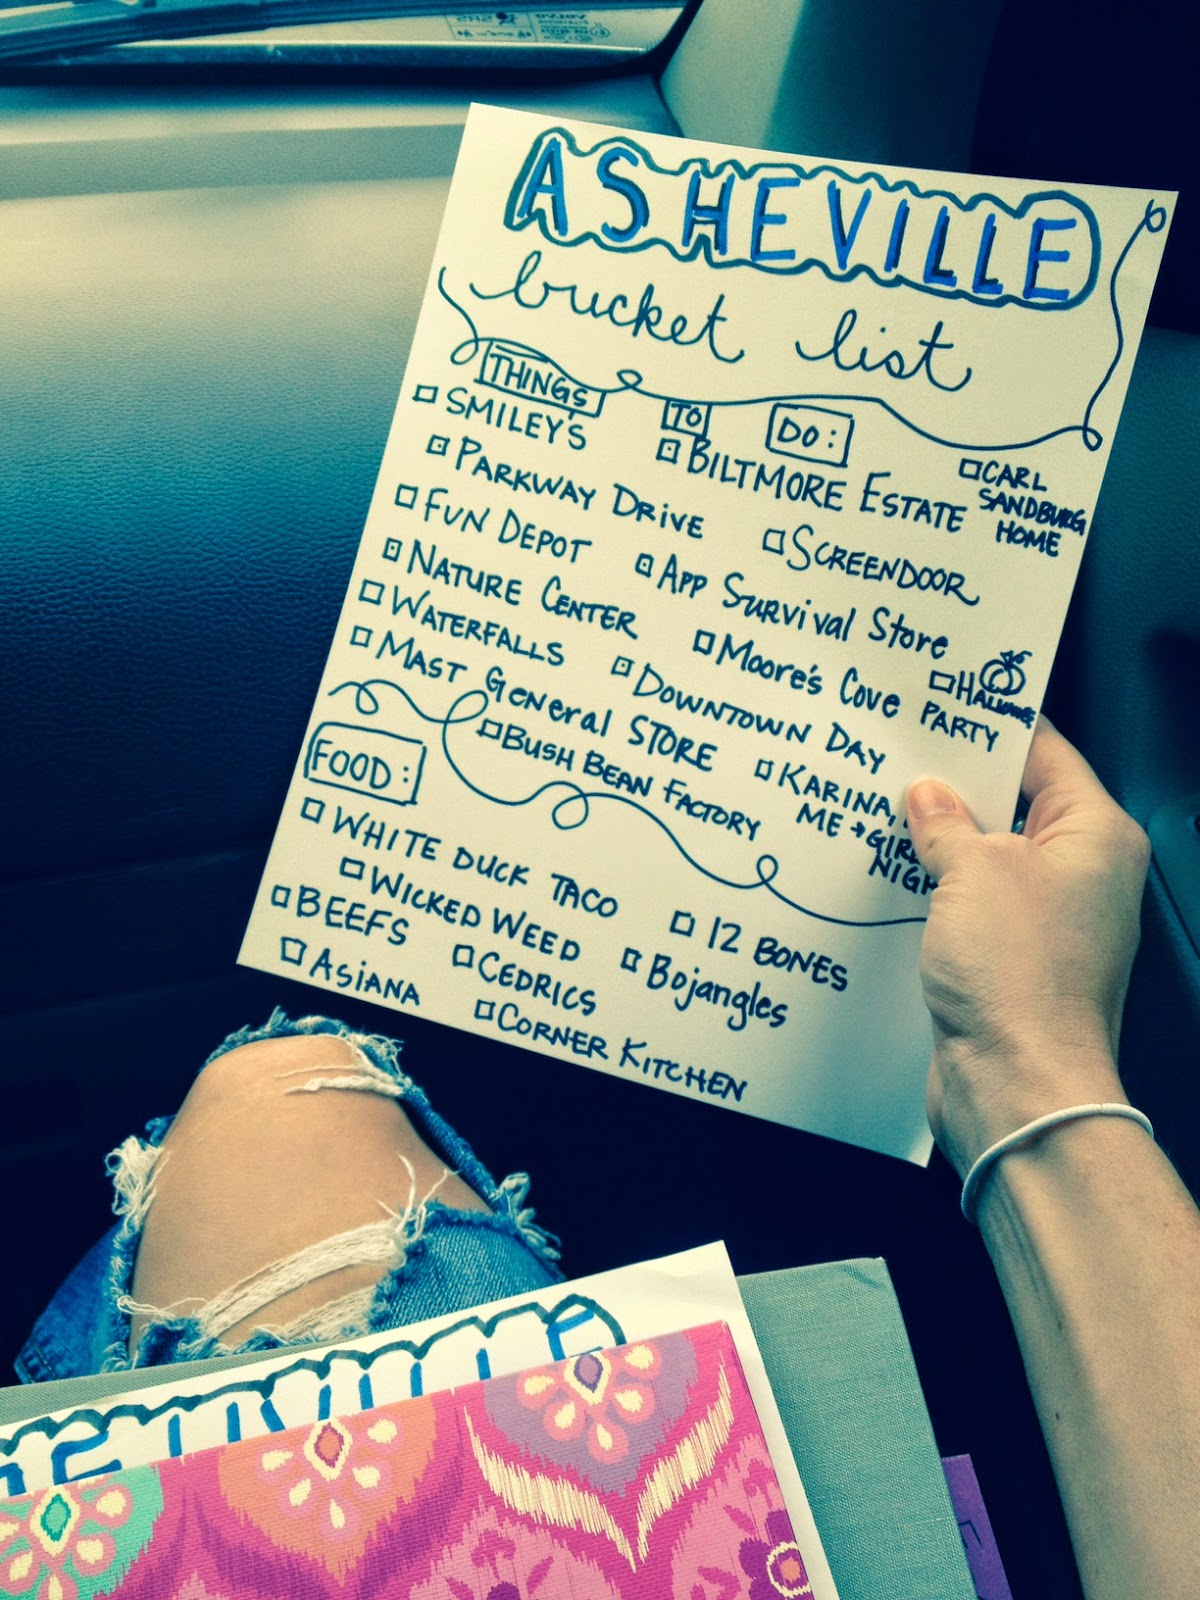 ASHEVILLE
bucket list
THINGS TO DO:
SMILEY'S
BILTMORE ESTATE
CARL
SANDBURG
HOME
PARKWAY DRIVE
SCREENDOOR
FUN DEPOT
APP SURVIVAL STORE
NATURE CENTER
MOORE'S COVE
HALLOWEEN
PARTY
WATERFALLS
DOWNTOWN DAY
MAST GENERAL STORE
KARINA,
ME → GIRLS
NIGHT
BUSH BEAN FACTORY
FOOD:
WHITE DUCK TACO
12 BONES
WICKED WEED
Bojangles
BEEFS
CEDRICS
ASIANA
CORNER KITCHEN
VOLVO
SRS